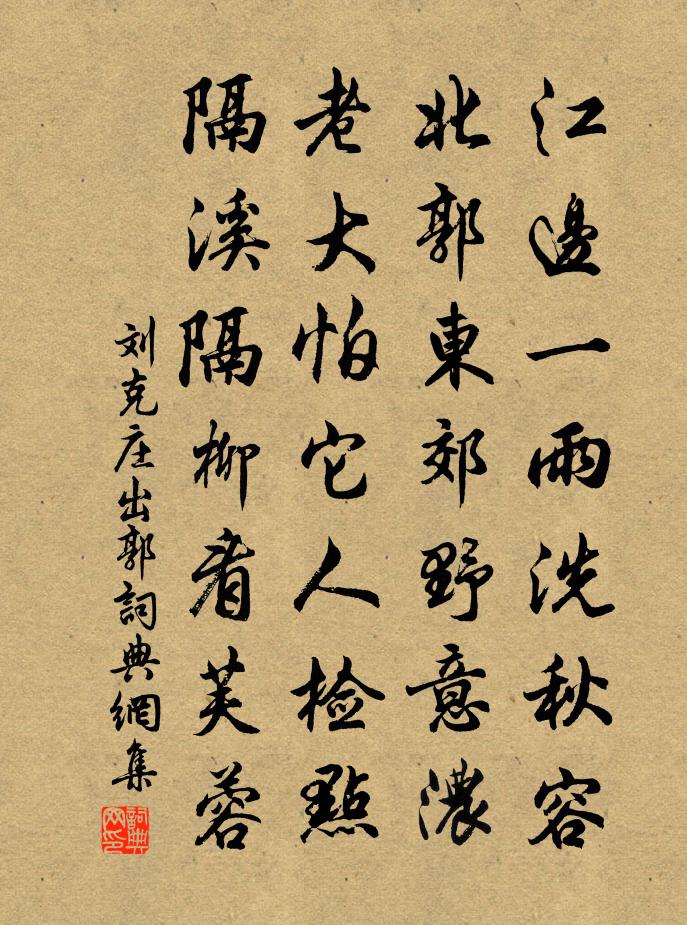 江邊一雨洗秋容
北郭東郊野意濃
老大怕它人检點
隔溪隔柳看芙蓉
刘克庄出郭詞典網集
詞典
网印